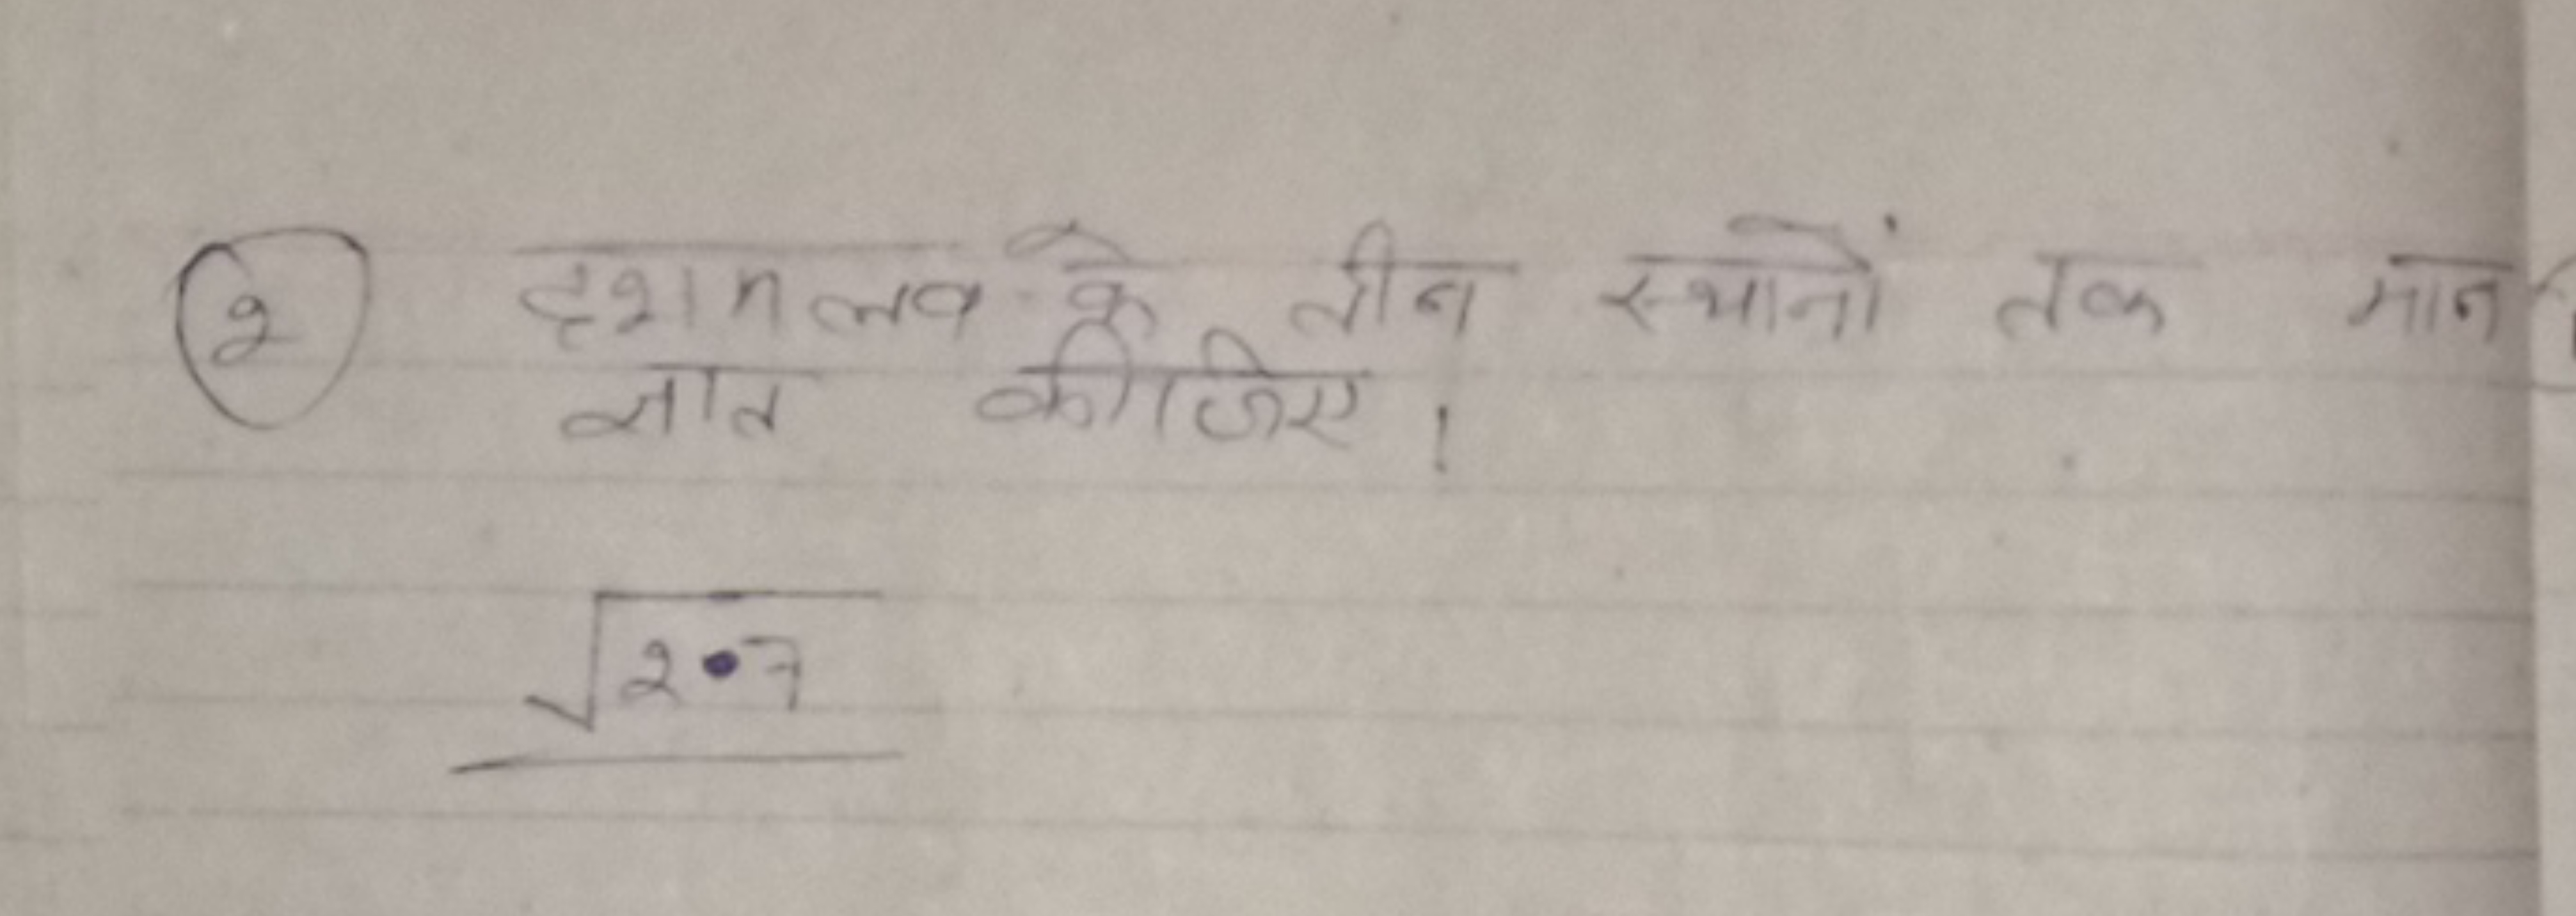 2 दशमलव के तीन स्थानों तक मान
ज्ञात कीजिए।
√2•7